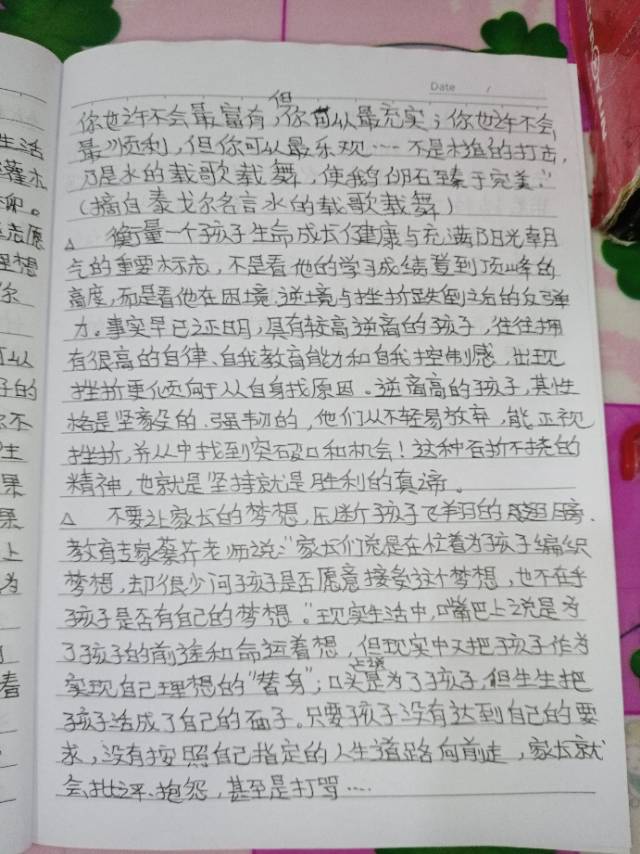 Date /
你也许不会最富有,但你可以最充实;你也许不会
最顺利,但你可以最乐观……不是槌的打击,
乃是水的载歌载舞,使鹅卵石臻于完美。"
(摘自泰戈尔名言水的载歌载舞)
△ 衡量一个孩子生命成长健康与充满阳光朝
气的重要标志,不是看他的学习成绩登到顶峰的
高度,而是看他在困境、逆境与挫折跌倒之后的反弹
力。事实早已证明,具有较高逆商的孩子,往往拥
有很高的自律、自我教育能力和自我控制感,出现
挫折更倾向于从自身找原因。逆商高的孩子,其性
格是坚毅的、强韧的,他们从不轻易放弃,能正视
挫折,并从中找到突破口和机会!这种百折不挠的
精神,也就是坚持就是胜利的真谛。
△ 不要让家长的梦想,压断了孩子飞翔的翅膀、
教育专家蔡芹老师说:"家长们总是在忙着为孩子编织
梦想,却很少问孩子是否愿意接受这个梦想,也不在乎
孩子是否有自己的梦想。"现实生活中,嘴巴上说是为
了孩子的前途和命运着想,但现实中又把孩子作为
实现自己理想的"替身";口头上说是为了孩子,但生生把
孩子活成了自己的面子。只要孩子没有达到自己的要
求,没有按照自己指定的人生道路向前走,家长就
会批评、抱怨,甚至是打骂……
生活
。
志愿
理想
你
可以
子的
你不
生
果
果
上
为
着